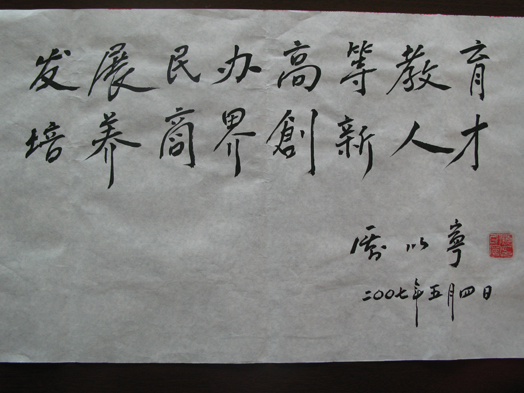 发展民办高等教育
培养商界創新人才
厲以寧
二00七年五月四日